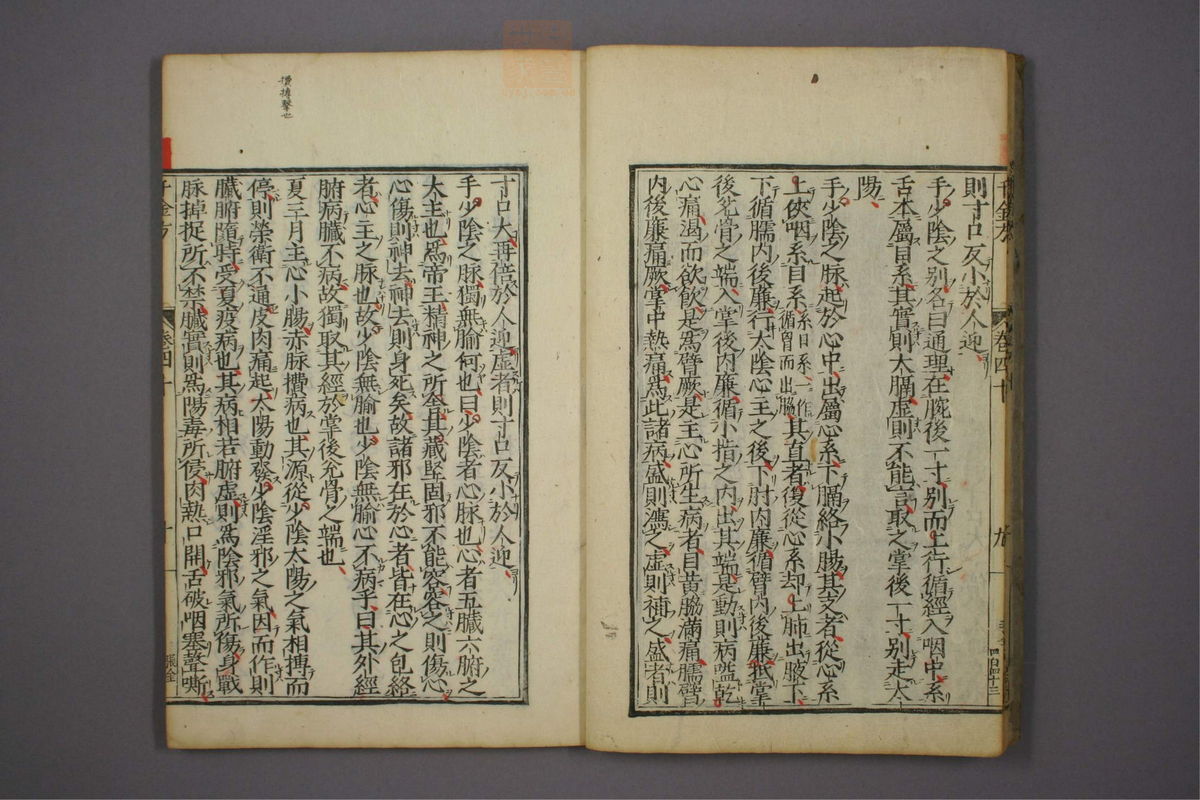 則寸口反小於人迎
手少陰之別名曰通理在腕後一寸別而上行循經入咽中系
舌本屬目系其實則大膈虛則不能言取之掌後一寸別走太
陽
手少陰之脉起於心中出屬心系下膈絡小腸其支者從心系
上俠咽系目系系目系一作循胃而出脇其直者復從心系却上肺出腋下
下循臑內後廉行太陰心主之後下肘內廉循臂內後廉抵掌
後兌骨之端入掌後內廉循小指之內出其端是動則病嗌乾
心痛渴而欲飲是爲臂厥是主心所生病者目黃脇滿痛臑臂
內後廉痛厥掌中熱痛爲此諸病盛則瀉之虛則補之盛者則
千金方
卷四十
九
四百四十三
寸口大再倍於人迎虛者則寸口反小於人迎
手少陰之脉獨無腧何也曰少陰者心脉也心者五臟六腑之
大主也爲帝王精神之所舍其藏堅固邪不能容容之則傷心
心傷則神去神去則身死矣故諸邪在於心者皆在心之包絡
者心主之脉也故少陰無腧也少陰無腧心不病乎曰其外經
腑病臟不病故獨取其經於掌後兌骨之端也
夏三月主心小腸赤脉攢病也其源從少陰太陽之氣相搏而
停則榮衛不通皮肉痛起太陽動發少陰淫邪之氣因而作則
臟腑隨時受夏疫病也其病相若腑虛則爲陰邪氣所傷身戰
脉掉捉所不禁臟實則爲陽毒所侵肉熱口開舌破咽塞聲嘶
千金方
卷四十
十